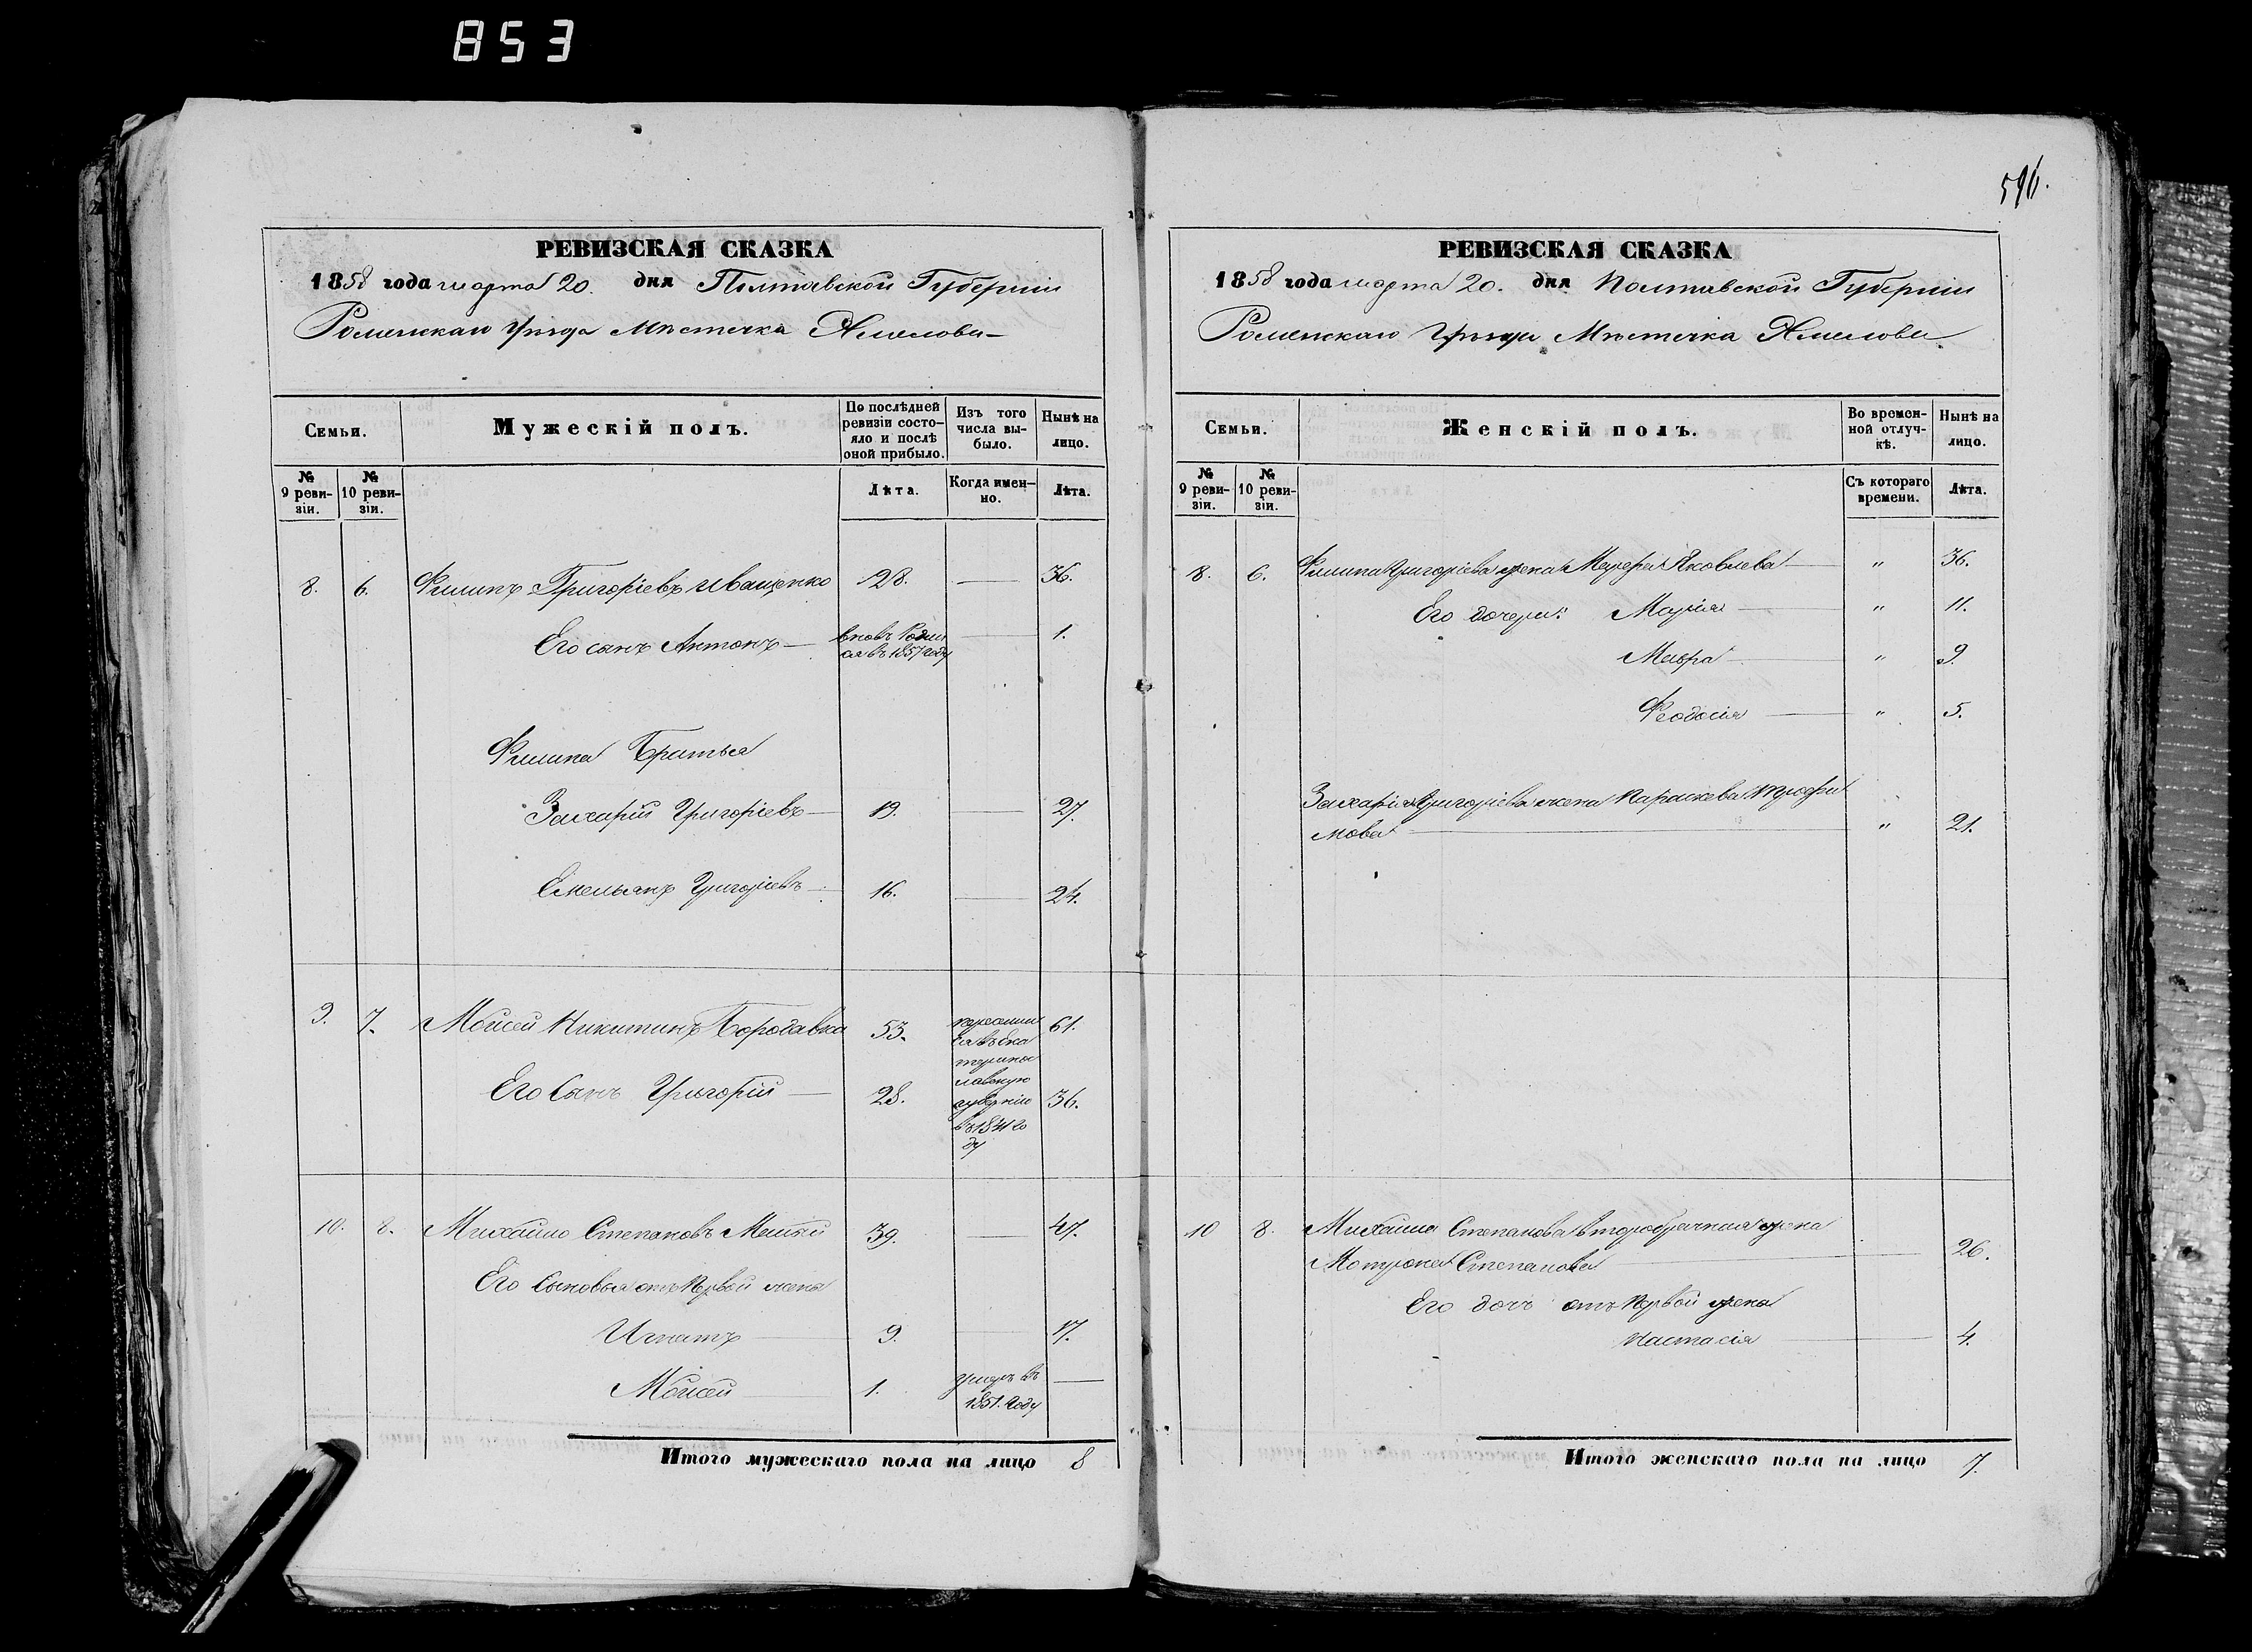 853
596.
РЕВИЗСКАЯ СКАЗКА
1858 года марта 20. дня Полтавской Губерніи
Роменскаго Уѣзда Мѣстечка Хмелова
Семьи.
Мужескій полъ.
По послѣдней ревизіи состояло и послѣ оной прибыло.
Изъ того числа выбыло.
Нынѣ на лицо.
№ 9 ревизіи.
№ 10 ревизіи.
Лѣта.
Когда именно.
Лѣта.
8. 6. Филипъ Григоріевъ Иващенко 28. — 36.
Его сынъ Антонъ — вновь родился въ 1857 году — 1.
Филипа Братья
Захарій Григоріевъ — 19. — 27.
Емельянъ Григоріевъ — 16. — 24.
9. 7. Моисей Никитинъ Бородавка 53. 61.
Его Сынъ Григорій — 28. 36.
губернію
10. 8. Михайло Степановъ 39. — 47.
Его Сыновья отъ Первой жены
Игнатъ — 9. — 17.
Моисей — 1. умеръ въ 1851. Году —
Итого мужескаго пола на лицо 8
РЕВИЗСКАЯ СКАЗКА
1858 года марта 20. дня Полтавской Губерніи
Роменскаго Уѣзда Мѣстечка Хмелова
Семьи.
Женскій полъ.
Во временной отлучкѣ.
Нынѣ на лицо.
№ 9 ревизіи.
№ 10 ревизіи.
Съ котораго времени.
Лѣта.
8. 6. Филипа Григоріева жена Яковлева — " 36.
Его дочери: Марія — " 11.
Мавра — " 9.
Феодосія — " 5.
Захарія Григоріева жена Параскева Трофи
мова — " 21.
10 8. Михайла Степанова второбрачная жена
Мотрона Степанова — 26.
Его дочь отъ Первой жены
Настасія — 4.
Итого женскаго пола на лицо 7.